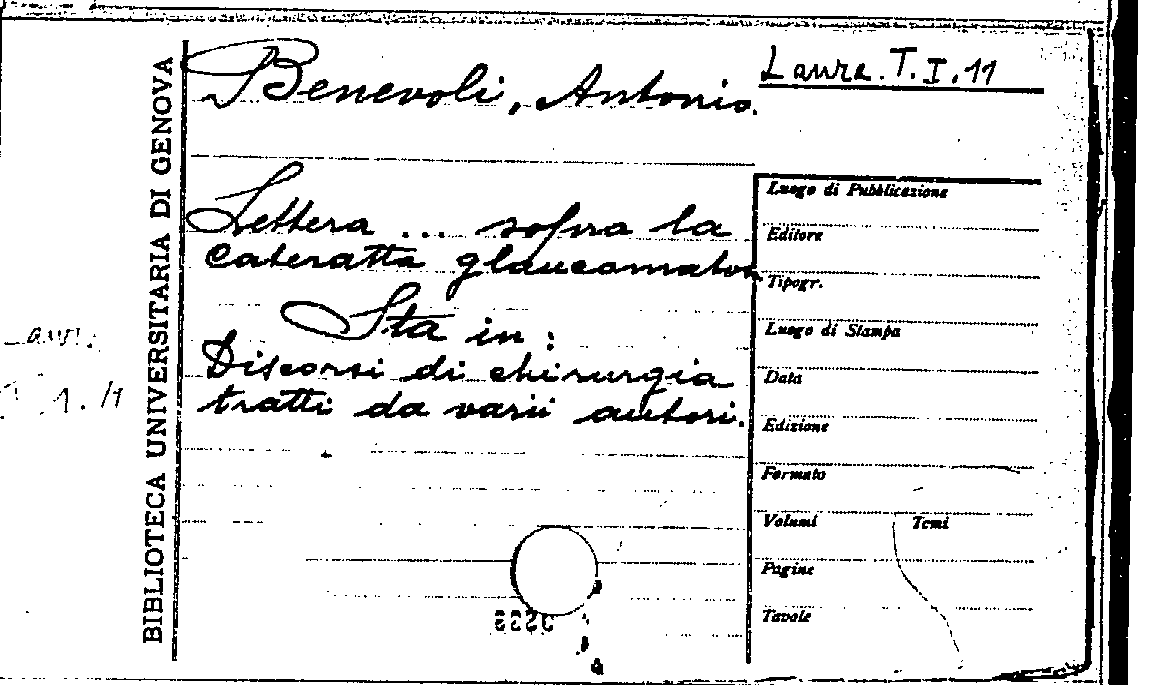 BIBLIOTECA UNIVERSITARIA DI GENOVA
Benevoli, Antonio.
Laura. T. I. 11
Lettera ... sopra la
Cateratta glaucomatosa
Sta in:
Discorsi di chirurgia
tratti da varii autori.
Luogo di Pubblicazione
Editore
Tipogr.
Luogo di Stampa
Data
Edizione
Formato
Volumi Tomi
Pagine
Tavole